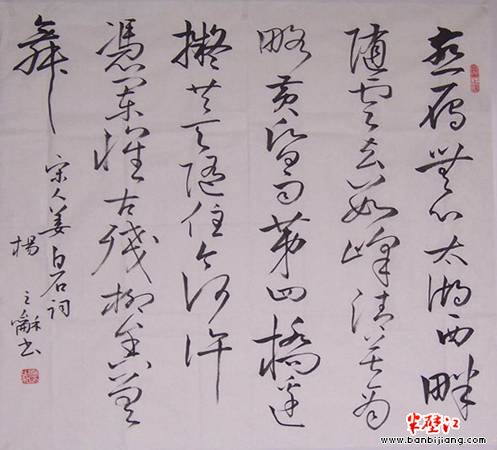 燕雁無心太湖西畔
隨雲去數峰清苦商
略黃昏雨第四橋邊
擬共天隨住今何許
憑闌懷古殘柳參差
舞
宋人姜白石詞
楊之龢書
半壁江
www.banbijiang.com